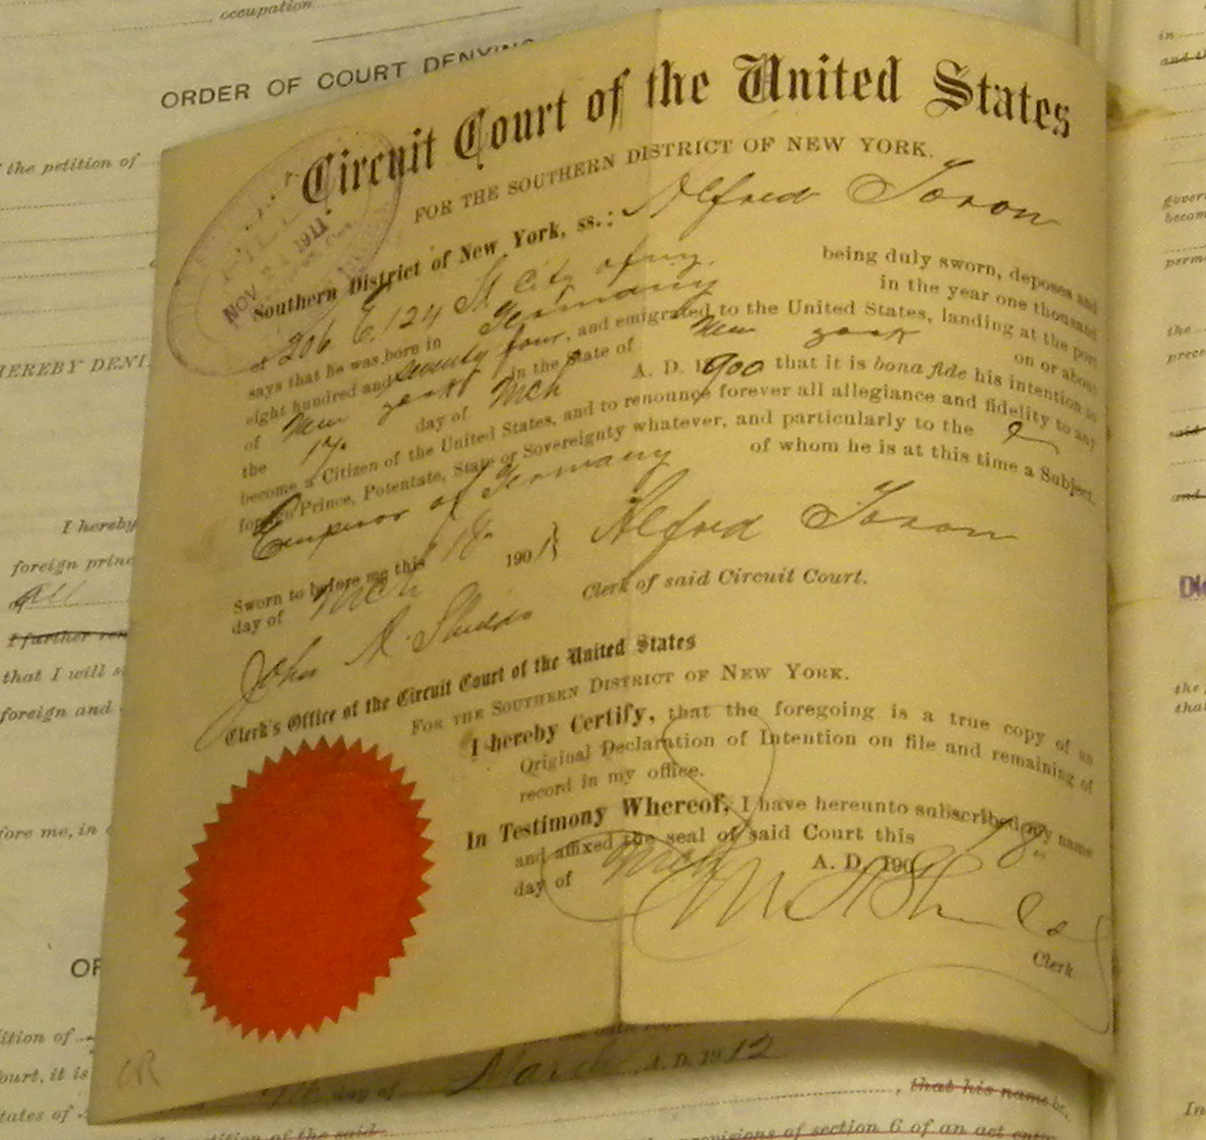 occupation
ORDER OF COURT DENYING
the petition of
HEREBY DENI
I hereby
foreign princ
of all
I further ren
that I will s
foreign and
fore me, in
Circuit Court of the United States
FOR THE SOUTHERN DISTRICT OF NEW YORK.
Southern District of New York, ss.: Alfred
NOV 1911
being duly sworn, deposes and
of 206 E. 124 St City of
says that he was born in Germany in the year one thousand
eight hundred and seventy four, and emigrated to the United States, landing at the port
of New York in the State of New York on or about
the 17 day of Mch A. D. 1900 that it is bona fide his intention to
become a Citizen of the United States, and to renounce forever all allegiance and fidelity to any
foreign Prince, Potentate, State or Sovereignty whatever, and particularly to the
Emperor of Germany of whom he is at this time a Subject.
Sworn to before me this 18 Alfred
day of Mch 190
Clerk of said Circuit Court.
John A. Shields
Clerk's Office of the Circuit Court of the United States
FOR THE SOUTHERN DISTRICT OF NEW YORK.
I hereby Certify, that the foregoing is a true copy of an
Original Declaration of Intention on file and remaining of
record in my office.
In Testimony Whereof, I have hereunto subscribed my name
and affixed the seal of said Court this 18
day of Mch A. D. 190
Clerk.
OR
ition of
ourt, it is
tates of
day of March A. D. 1912
, that his name be,
petition of the said
provisions of section 6 of an act
in
and
gover
becom
perm
the
prece
said
and
the
that
In